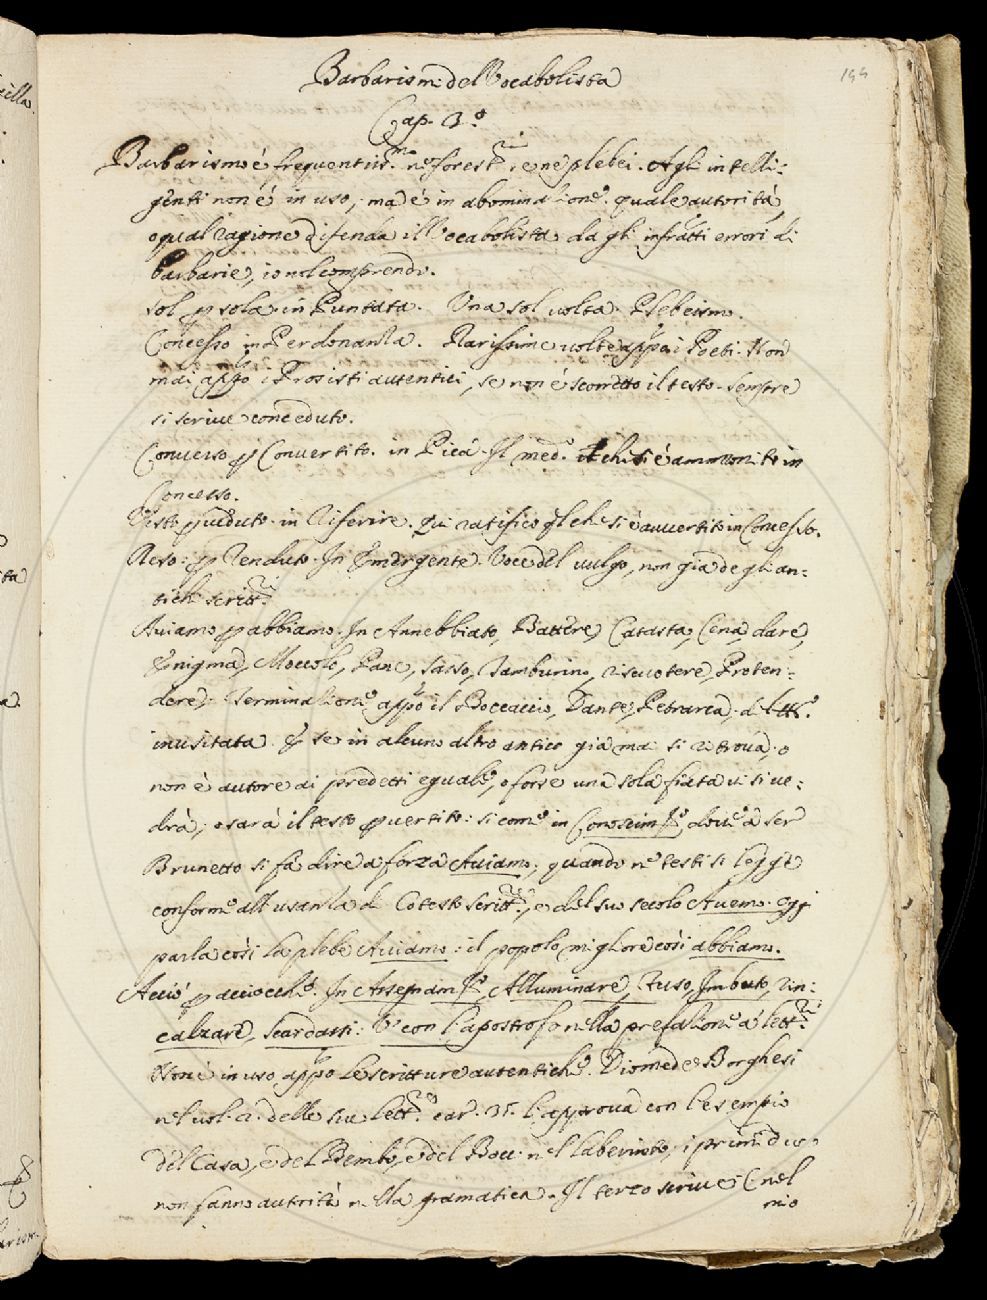 199
Barbarism. del Vocabolista
Cap. 3.º
Barbarismo é frequentiss.mo ne' forest.ri, e ne' plebei. Agli intelli-
genti non é in uso, ma é in abominazione. quale autorità,
o qual ragione difenda il Vocabolista da gli infratti errori di
barbarie, io nol comprendo.
Sol p sola. in Puntata. Una sol volta. Plebeismo.
Concesso in Perdonanza. Rarissime volte appo i Poeti. Non
mai appo i Prosisti autentici, se non é scorretto il testo. Sempre
si scrive conceduto.
Converso p Convertito. in Pica. Il med.º di che si é ammonito in
Concesso.
Visto p veduto. in Riferire. Qui ratifico ql che si é avvertito in Concesso.
Reso. p Renduto. In Emergente. Voce del vulgo, non già de gli an-
tichi scritt.ri
Aviamo p abbiamo. In Annebbiato, Battere, Catasta, Cena, dare,
Enigma, Moccolo, Pane, Sasso, Tamburino, riscuotere, Proten-
dere. Terminazione appo il Boccaccio, Dante, Petrarca, di
inusitata. E se in alcuno altro antico già mai si ritrova, o
non é autore ai predetti eguale, o forse una sola fiata vi si ve-
drà, o sarà il testo pvertito: si come in Conoscim.to, dove a ser
Brunetto si fa dire a forza Aviamo, quando ne' testi si legge
conforme all'usanza di cotesto scritt.re, e del suo secolo Avemo. Oggi
parla così la plebe Aviamo: il popolo migliore così abbiamo.
Acciò p acciocche. In Assegnam.to, Alluminare, Fuso, Imbuto, rin-
calzare, Scardassi: E con l'apostrofo nella prefazione a' lett.ri
Non é in uso appo le scritture autentiche. Diomede Borghesi
nel vol. 2. delle sue lett.re car. 35. l'approva con l'esempio
del Casa, e del Bembo, e del Bocc. nel Laberinto, i primi due
non fanno autorità nella gramatica. Il terzo scrive (nel
mio